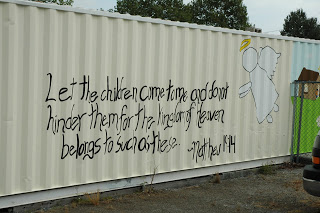 Let the children come to me and do not
hinder them for the kingdom of heaven
belongs to such as these.
- Matthew 19:14